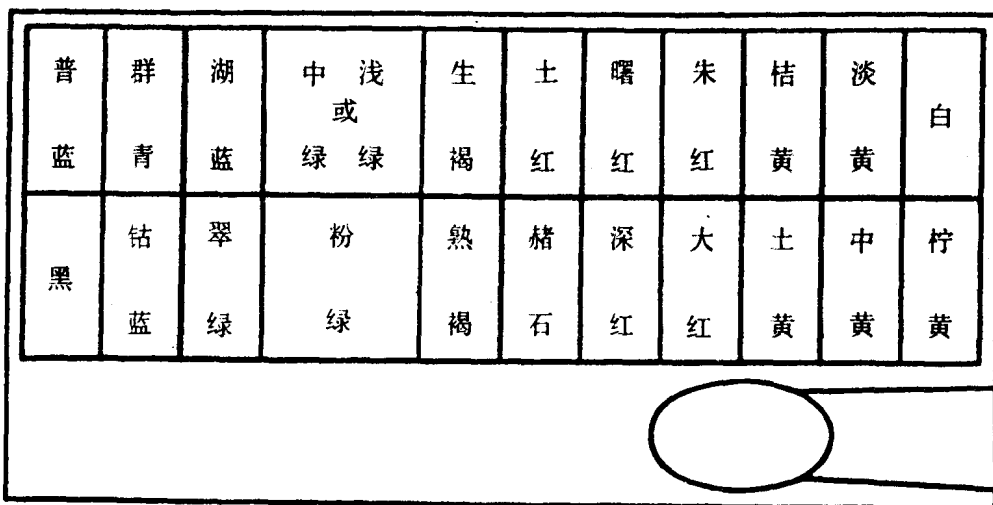 普蓝
群青
湖蓝
中绿或浅绿
生褐
土红
曙红
朱红
桔黄
淡黄
白
黑
钴蓝
翠绿
粉绿
熟褐
赭石
深红
大红
土黄
中黄
柠黄